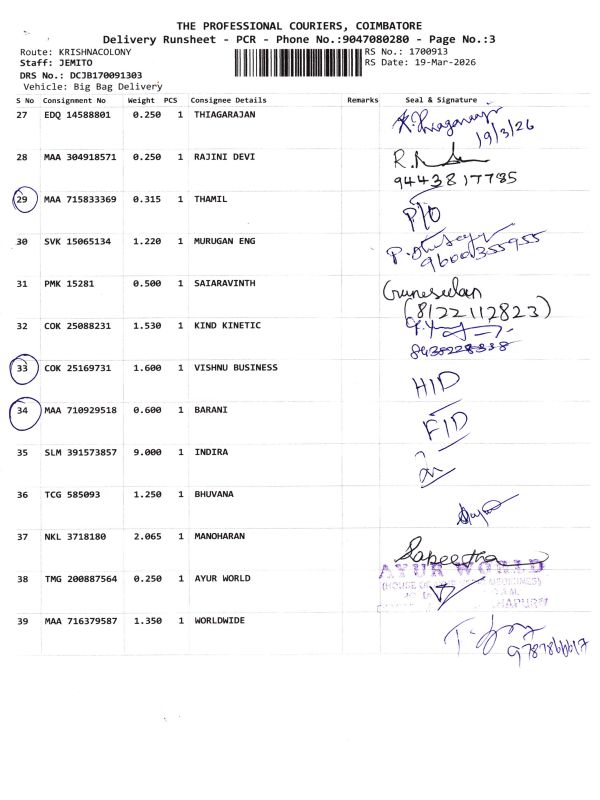 THE PROFESSIONAL COURIERS, COIMBATORE
Delivery Runsheet - PCR - Phone No.:9047080280 - Page No.:3
Route: KRISHNACOLONY RS No.: 1700913
Staff: JEMITO RS Date: 19-Mar-2026
DRS No.: DCJB170091303
Vehicle: Big Bag Delivery
S No Consignment No Weight PCS Consignee Details Remarks Seal & Signature
27 EDQ 14588801 0.250 1 THIAGARAJAN
19/3/26
28 MAA 304918571 0.250 1 RAJINI DEVI
9443817785
29 MAA 715833369 0.315 1 THAMIL P/O
30 SVK 15065134 1.220 1 MURUGAN ENG
9600355955
31 PMK 15281 0.500 1 SAIARAVINTH Gunaseelan
(8122112823)
32 COK 25088231 1.530 1 KIND KINETIC
33 COK 25169731 1.600 1 VISHNU BUSINESS H/D
34 MAA 710929518 0.600 1 BARANI F/D
35 SLM 391573857 9.000 1 INDIRA
36 TCG 585093 1.250 1 BHUVANA
37 NKL 3718180 2.065 1 MANOHARAN
38 TMG 200887564 0.250 1 AYUR WORLD AYUR WORLD
39 MAA 716379587 1.350 1 WORLDWIDE